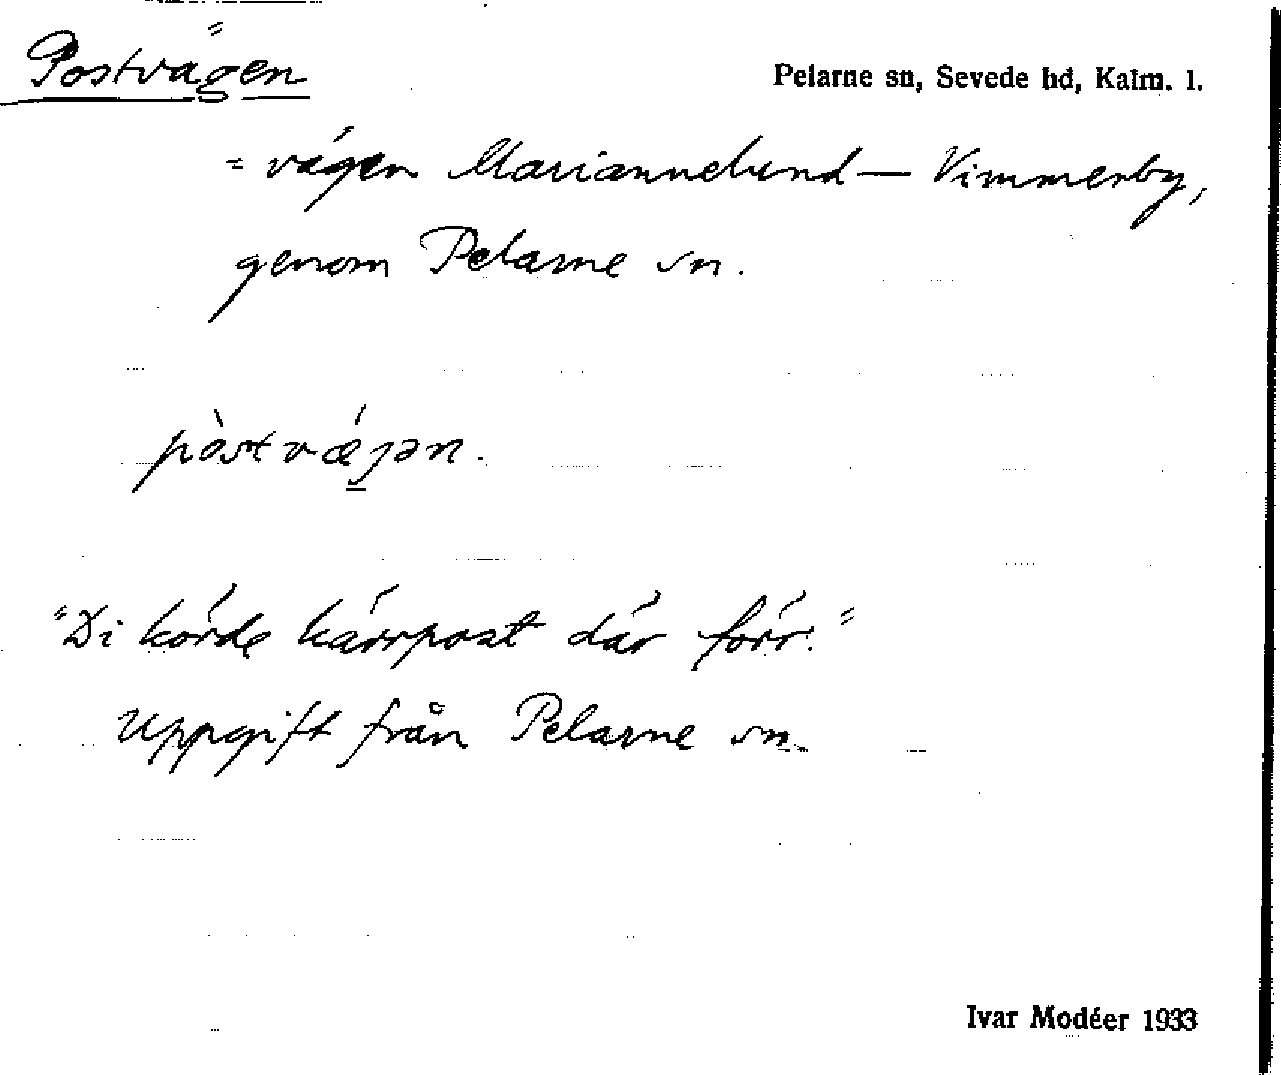 Postvägen
Pelarne sn, Sevede hd, Kalm. l.
= vägen Mariannelund — Vimmerby,
genom Pelarne sn.
pòstvǽjən.
"Di körde kärrpost där förr."
Uppgift från Pelarne sn.
Ivar Modéer 1933